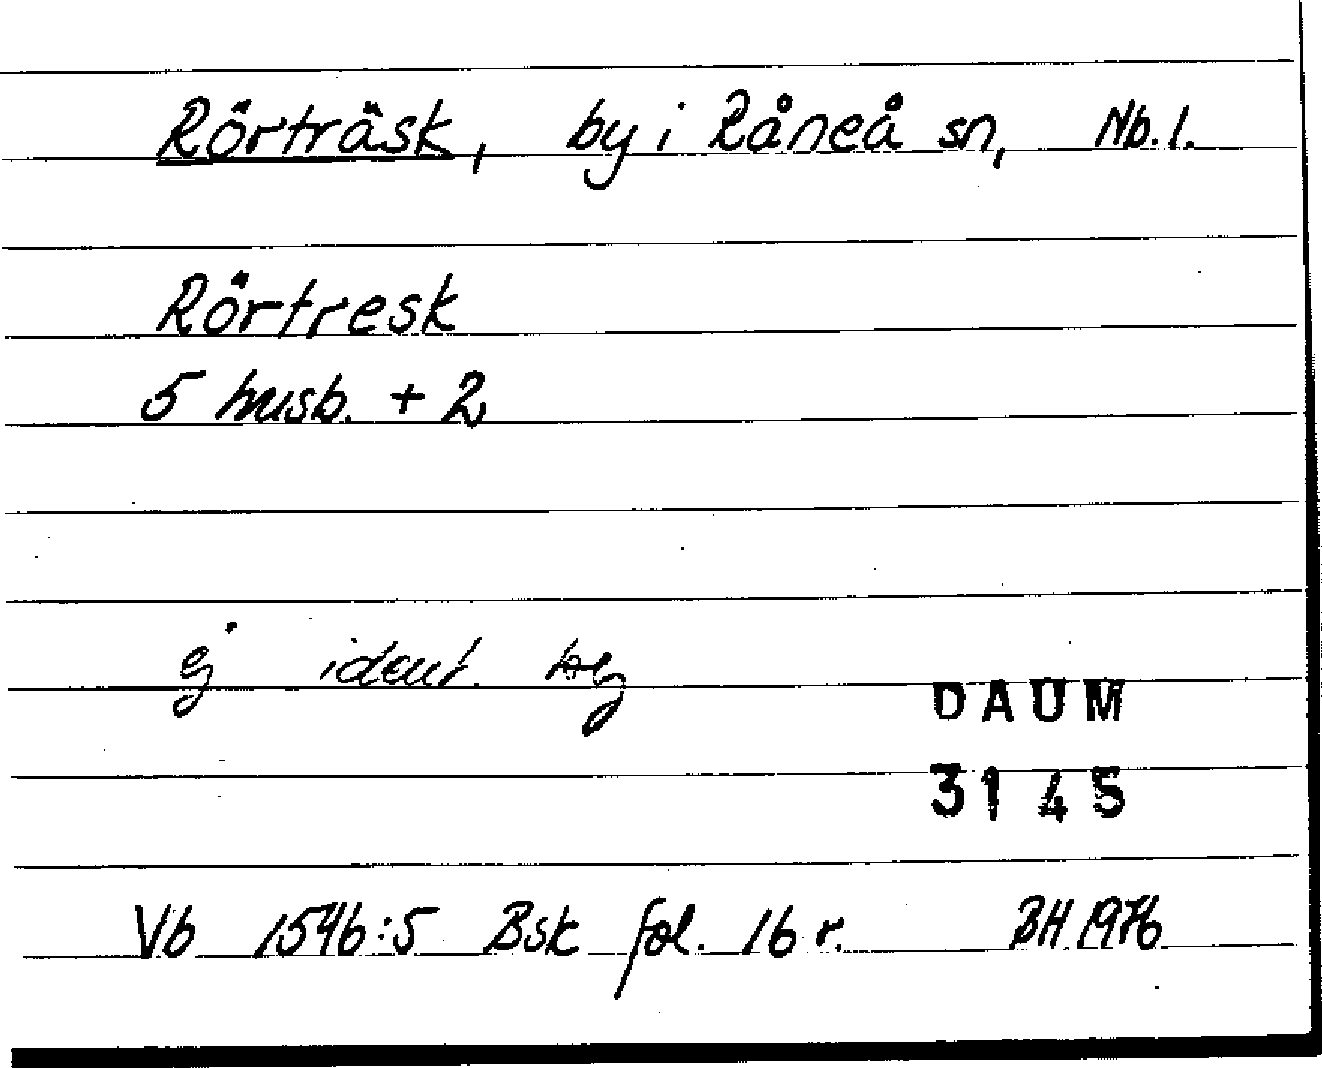 Rörträsk, by i Råneå sn, Nb. l.
Rörtresk
5 husb. + 2
ej ident.
DAUM
3145
Vb 1546:5 Bsk fol. 16 r. BH 1976